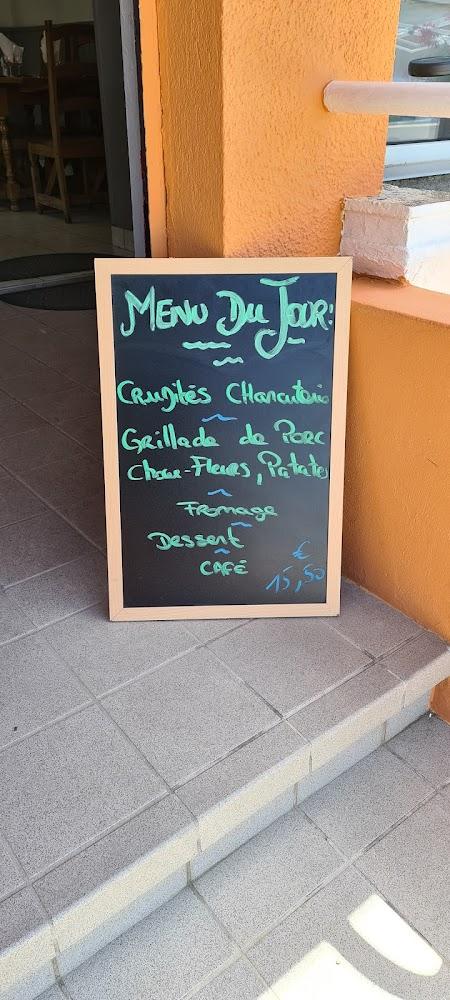 Menu Du Jour:
Crudités Charcuterie
Grillade de Porc
Choux-Fleurs, Patates
Fromage
Dessert
CAFÉ
€
15,50